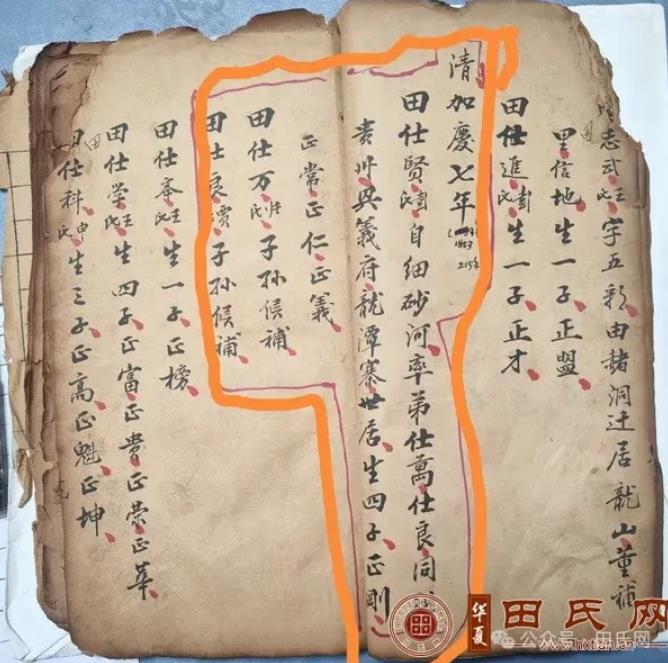 志武王氏字五彩由猪洞迁居龍山董補
里信地生一子正盟
田仕進彭氏生一子正才
清加慶七年
1803
215年
田仕賢彭氏自细砂河率弟仕萬仕良同
贵州興義府龍潭寨世居生四子正剛
正常正仁正義
田仕万氏子孫候補
田仕良子孫候補
田仕春王氏生一子正榜
田仕荣王氏生四子正富正贵正荣正華
田仕科申氏生三子正高正魁正坤
華夏
田氏网
公众号·田氏网
www.hxtian.cn